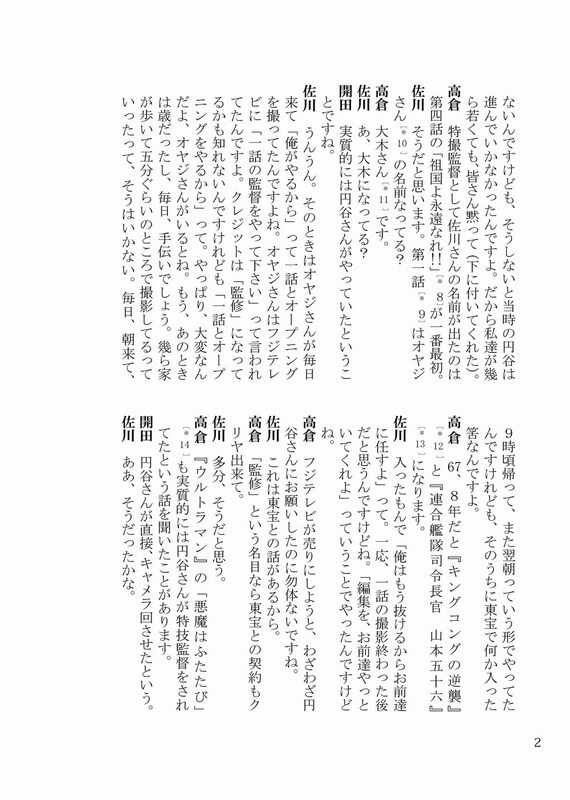 ないんですけども、そうしないと当時の円谷は
進んでいかなかったんですよ。だから私達が幾
ら若くても、皆さん黙って（下に付いてくれた）。
高倉　特撮監督として佐川さんの名前が出たのは
第四話の「祖国よ永遠なれ!!」［＊８］が一番最初。
佐川　そうだと思います。第一話［＊９］はオヤジ
さん［＊10］の名前なってる？
高倉　大木さん［＊11］です。
佐川　あ、大木になってる？
開田　実質的には円谷さんがやっていたというこ
とですね。
佐川　うんうん。そのときはオヤジさんが毎日
来て「俺がやるから」って一話とオープニング
を撮ってたんですよね。オヤジさんはフジテレ
ビに「一話の監督をやって下さい」って言われ
てたんですよ。クレジットは「監修」になって
るかも知れないんですけれども「一話とオープ
ニングをやるから」って。やっぱり、大変なん
だよ、オヤジさんがいるとね。もう、あのとき
は歳だったし、毎日、手伝いでしょう。幾ら家
が歩いて五分ぐらいのところで撮影してるって
いったって、そうはいかない。毎日、朝来て、
９時頃帰って、また翌朝っていう形でやってた
んですけれども、そのうちに東宝で何か入った
筈なんですよ。
高倉　67、８年だと『キングコングの逆襲』
［＊12］と『連合艦隊司令長官　山本五十六』
［＊13］になります。
佐川　入ったもんで「俺はもう抜けるからお前達
に任すよ」って。一応、一話の撮影終わった後
だと思うんですけどね。「編集を、お前達やっと
いてくれよ」っていうことでやったんですけど
ね。
高倉　フジテレビが売りにしようと、わざわざ円
谷さんにお願いしたのに勿体ないですね。
佐川　これは東宝との話があるから。
高倉　「監修」という名目なら東宝との契約もク
リヤ出来て。
佐川　多分、そうだと思う。
高倉　『ウルトラマン』の「悪魔はふたたび」
［＊14］も実質的には円谷さんが特技監督をされ
てたという話を聞いたことがあります。
開田　円谷さんが直接、キャメラ回させたという。
佐川　ああ、そうだったかな。
2